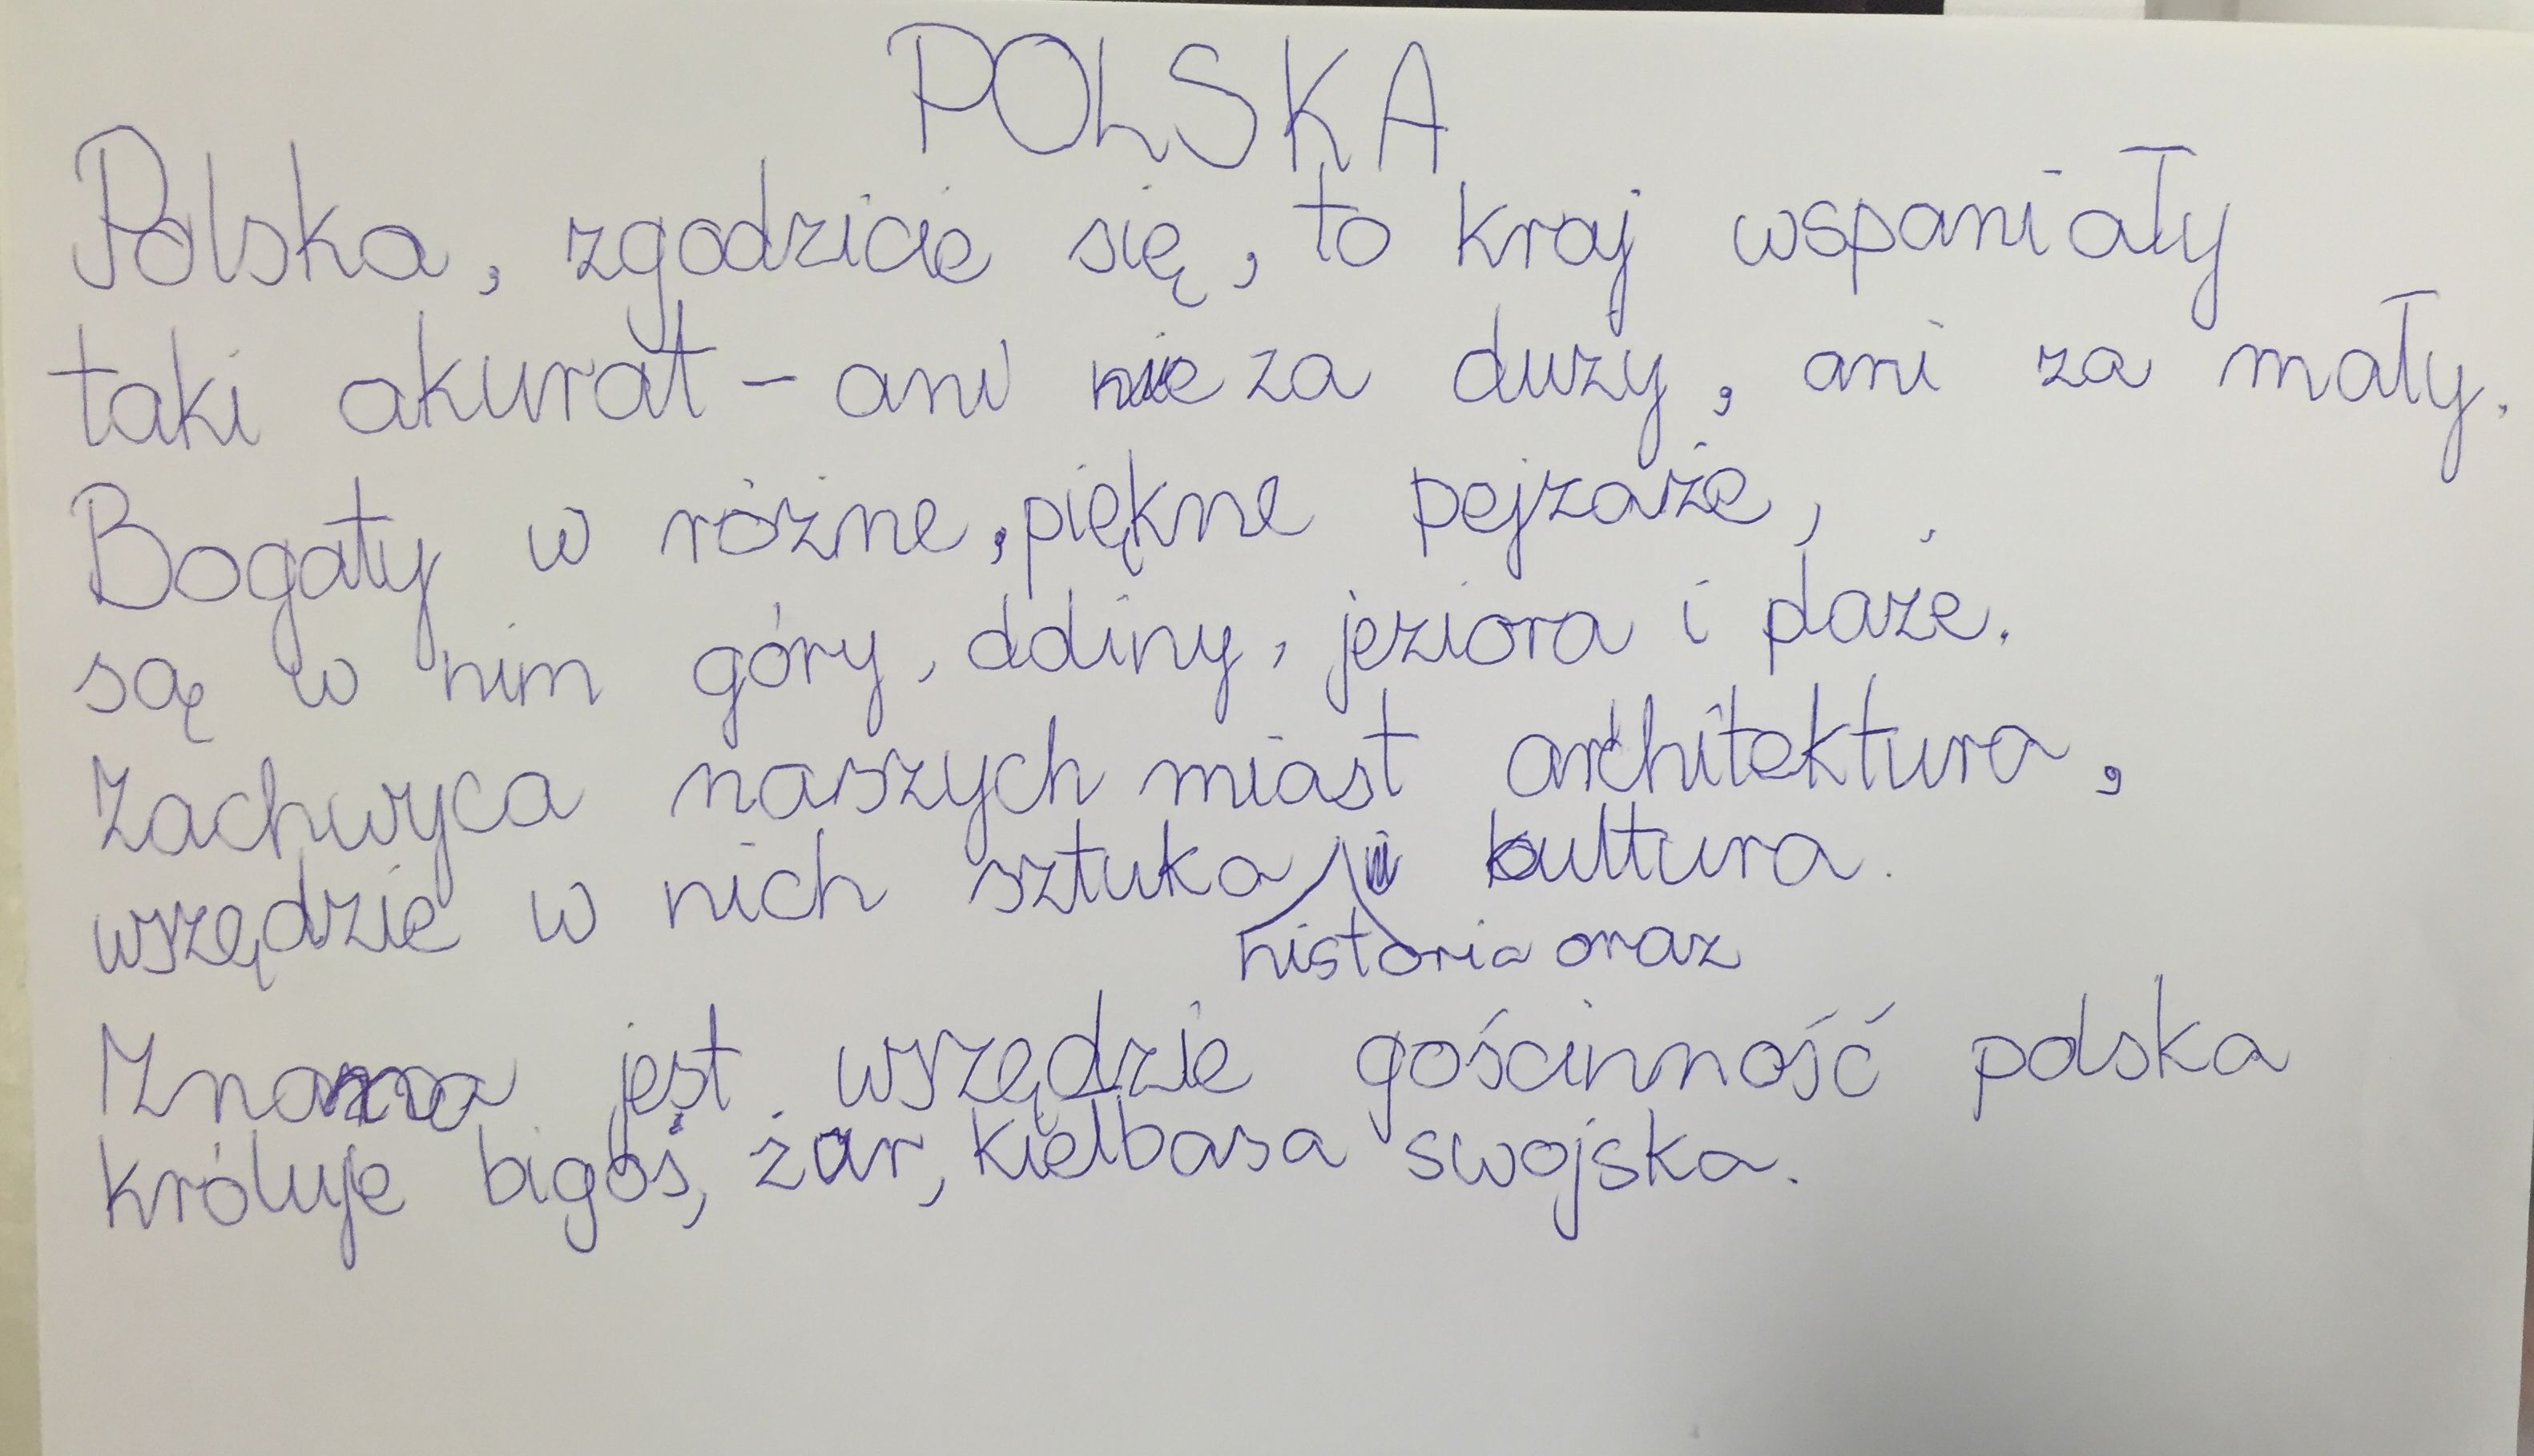 POLSKA
Polska, zgodzicie się, to kraj wspaniały
taki akurat - ani za duży, ani za mały.
Bogaty w różne, piękne pejzaże,
są w nim góry, doliny, jeziora i plaże.
Zachwyca naszych miast architektura,
wszędzie w nich sztuka kultura.
historia oraz
Znana jest wszędzie gościnność polska
króluje bigos, żur, kiełbasa swojska.